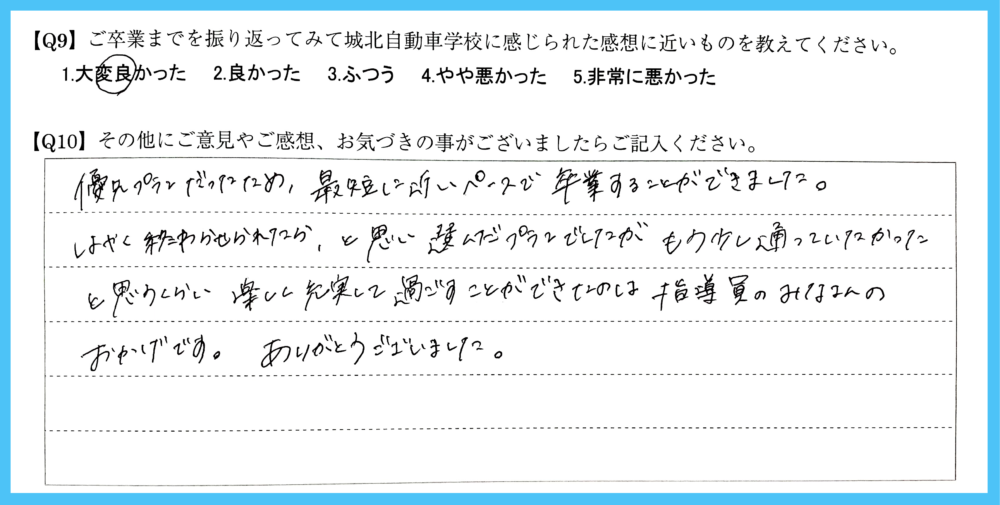 【Q9】ご卒業までを振り返ってみて城北自動車学校に感じられた感想に近いものを教えてください。
1.大変良かった 2.良かった 3.ふつう 4.やや悪かった 5.非常に悪かった
【Q10】その他にご意見やご感想、お気づきの事がございましたらご記入ください。
優先プランだったため、最短に近いペースで卒業することができました。
はやく終わらせられたら、と思い選んだプランでしたがもう少し通っていたかった
と思うくらい楽しく充実して過ごすことができたのは指導員のみなさんの
おかげです。ありがとうございました。